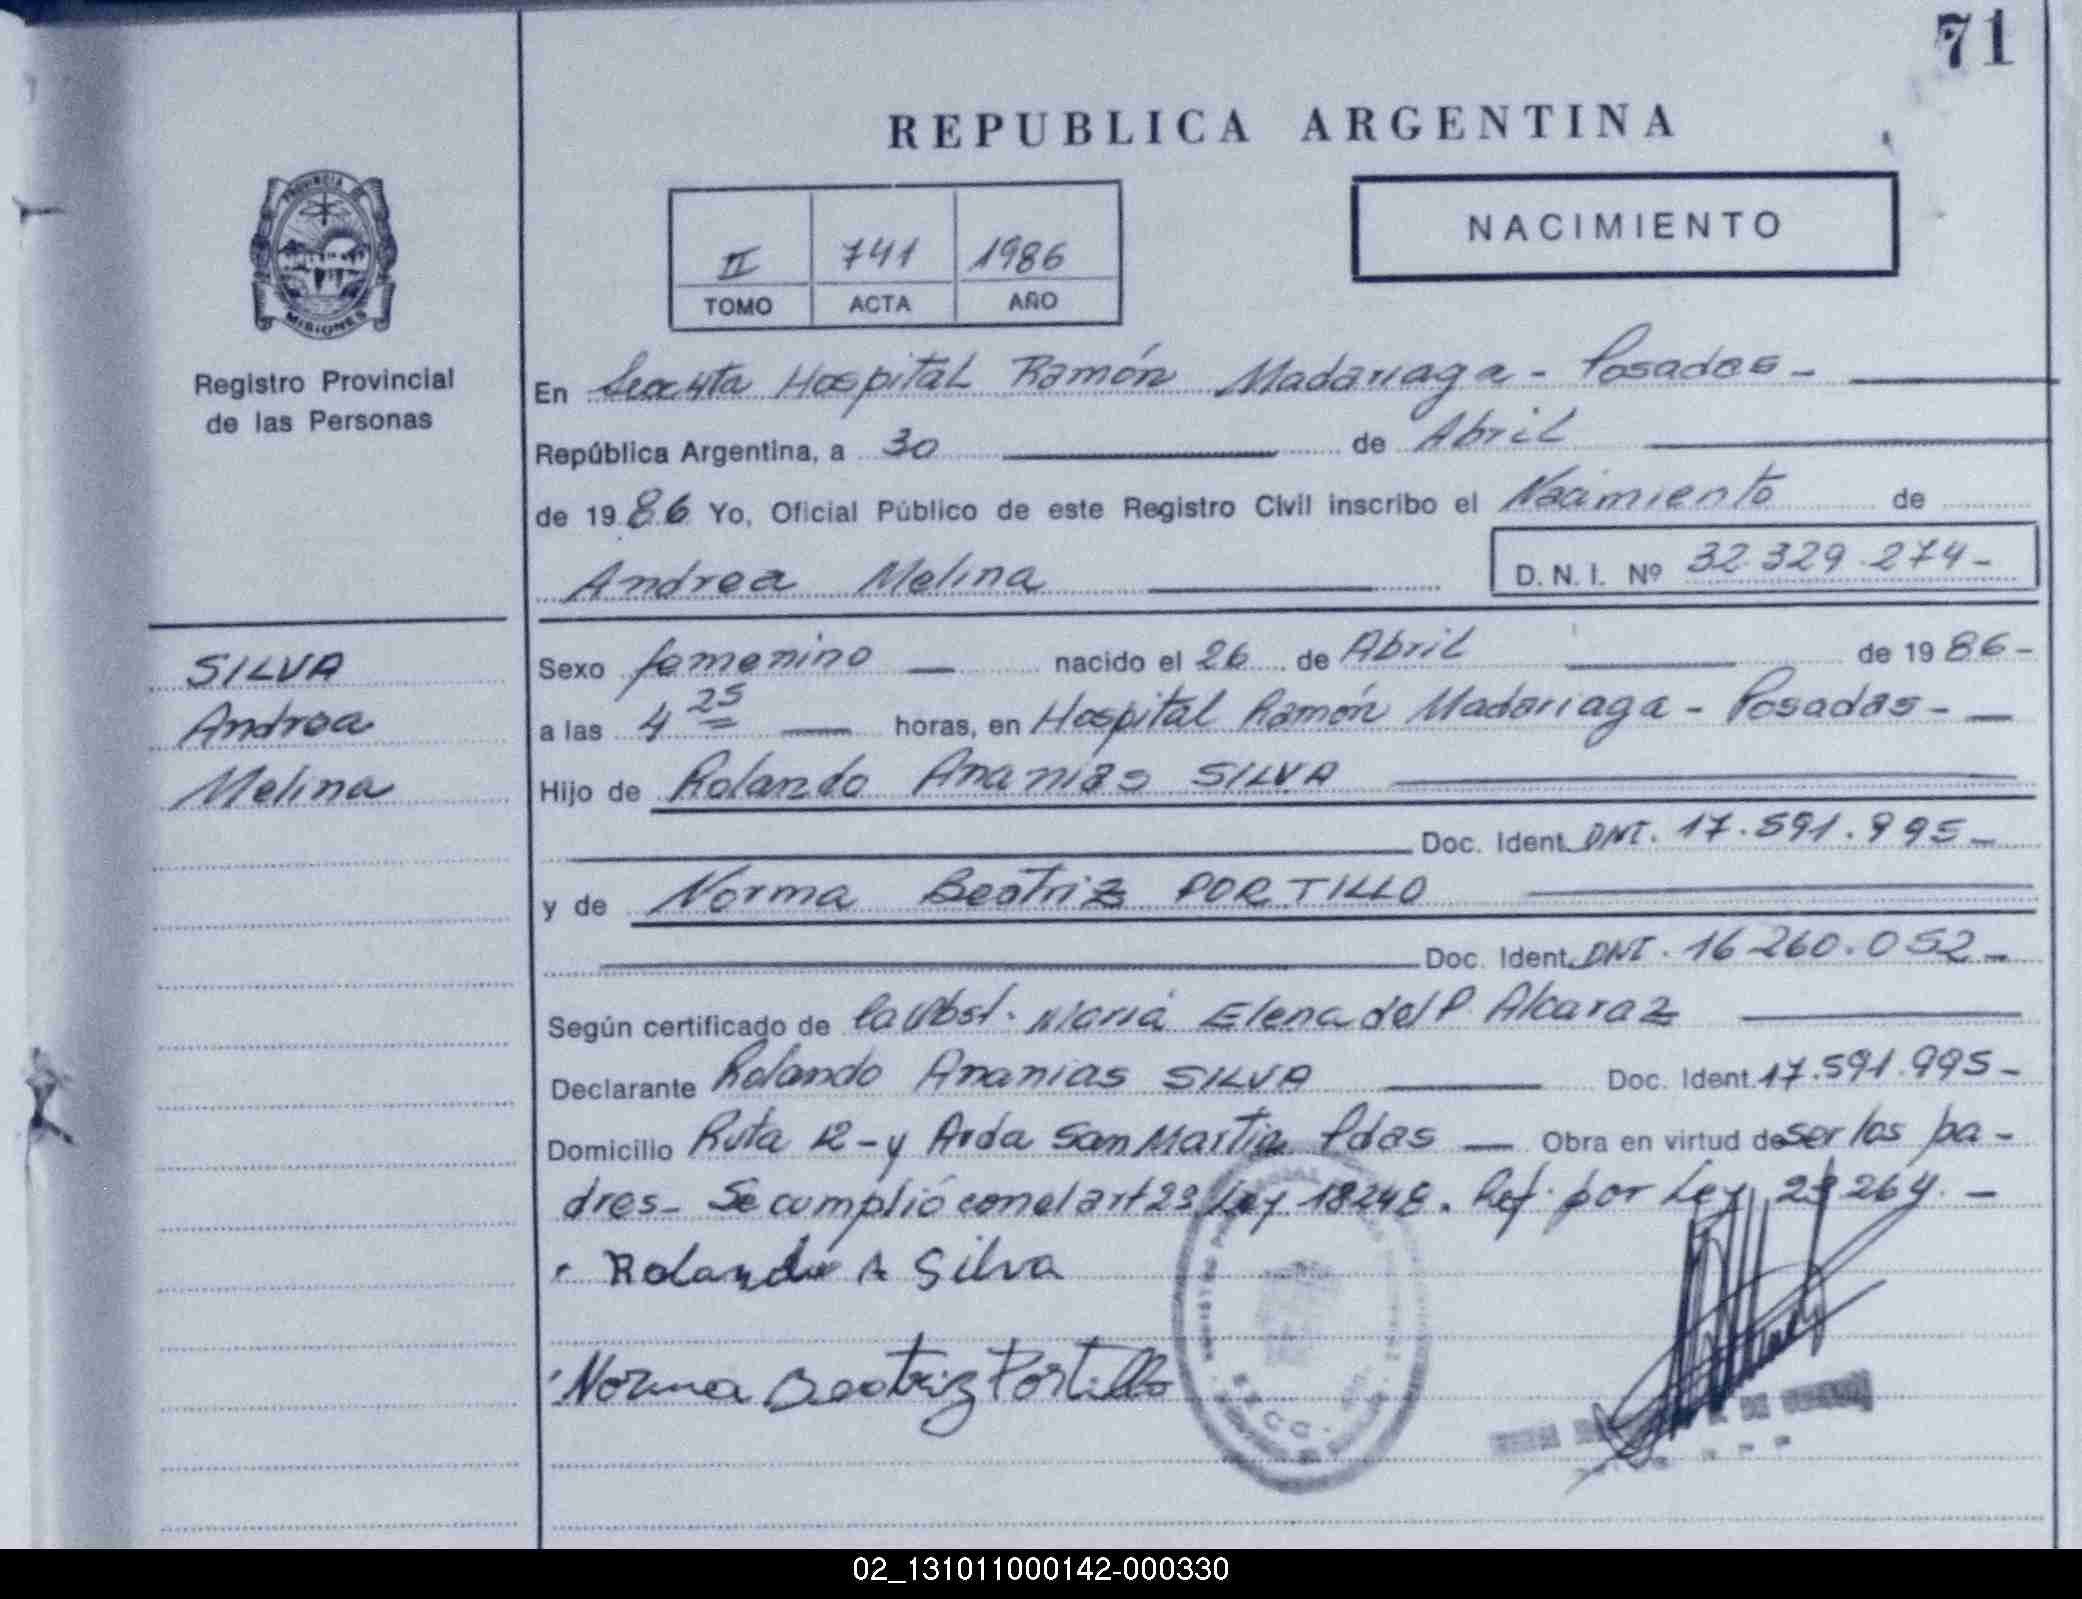 71
REPUBLICA ARGENTINA
PROVINCIA DE
MISIONES
Registro Provincial
de las Personas
II 741 1986
TOMO ACTA AÑO
NACIMIENTO
En Hospital Ramón Madariaga - Posadas -
República Argentina, a 30 de Abril
de 1986 Yo, Oficial Público de este Registro Civil inscribo el Nacimiento de
Andrea Melina D. N. I. Nº 32.329.274-
SILVA
Andrea
Melina
Sexo femenino nacido el 26 de Abril de 1986-
a las 4 25 horas, en Hospital Ramón Madariaga - Posadas -
Hijo de Rolando Ananias SILVA
Doc. Ident. DNI. 17.591.995-
y de Norma Beatriz PORTILLO
Doc. Ident. DNI. 16260.052-
Según certificado de la Obst. María Elena del P. Alcaraz
Declarante Rolando Ananias SILVA Doc. Ident. 17.591.995-
Domicilio Ruta 12 - y Avda San Martin Pdas - Obra en virtud de ser los pa-
dres- Se cumplió con el art 23 Ley 18248. Ref. por Ley 23264. -
Rolando A Silva
Norma Beatriz Portillo
02_131011000142-000330